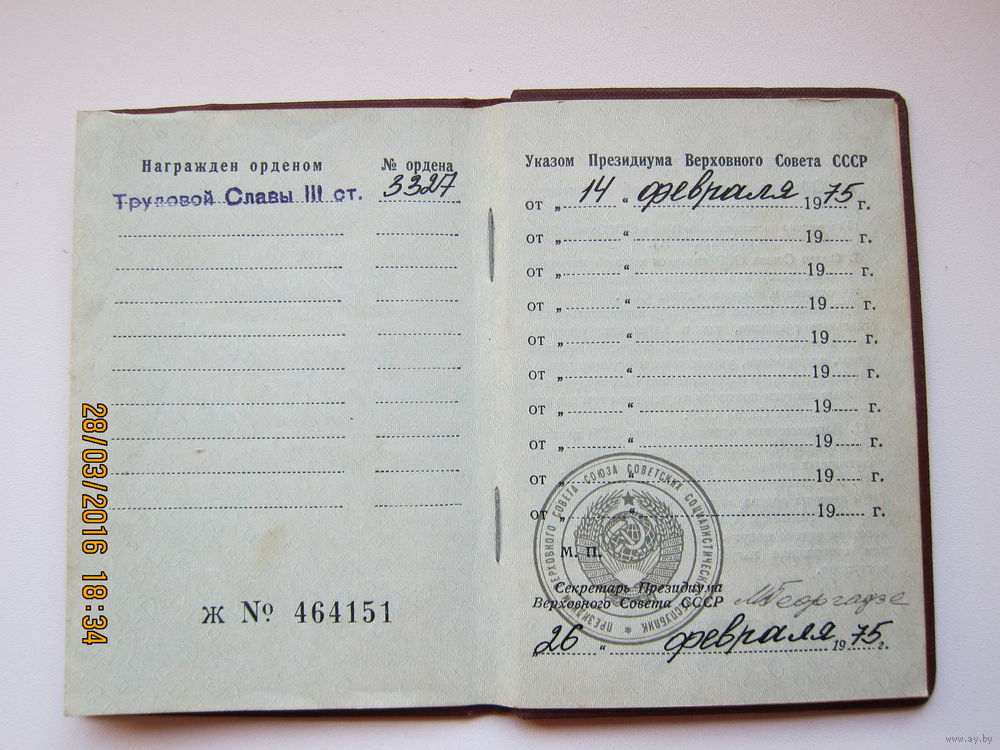 Награжден орденом № ордена
Трудовой Славы III ст. 3327
Ж № 464151
Указом Президиума Верховного Совета СССР
от „ 14 “ февраля 1975 г.
от „ “ 19 г.
от „ “ 19 г.
от „ “ 19 г.
от „ “ 19 г.
от „ “ 19 г.
от „ “ 19 г.
от „ “ 19 г.
от „ “ 19 г.
от „ “ 19 г.
ПРЕЗИДИУМ ВЕРХОВНОГО СОВЕТА СОЮЗА СОВЕТСКИХ СОЦИАЛИСТИЧЕСКИХ РЕСПУБЛИК
М. П.
Секретарь Президиума
Верховного Совета СССР М Георгадзе
„ 26 “ февраля 1975 г.
28/03/2016 18:34
www.ay.by